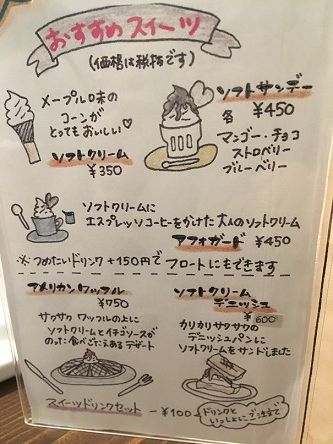 おすすめスイーツ
(価格は税抜です)
メープル味の
コーンが
とってもおいしい♡
ソフトクリーム
¥350
ソフトサンデー
各 ¥450
マンゴー・チョコ
ストロベリー
ブルーベリー
ソフトクリームに
エスプレッソコーヒーをかけた大人のソフトクリーム
アフォガード ¥450
※つめたいドリンク+150円でフロートにもできます
アメリカンワッフル
¥750
サクサクワッフルの上に
ソフトクリームとイチゴソースが
のった食べごたえあるデザート
ソフトクリーム
デニッシュ
¥600
カリカリサクサクの
デニッシュパンに
ソフトクリームをサンドしました
スイーツドリンクセット ー¥100
ドリンクと
いっしょにご注文で